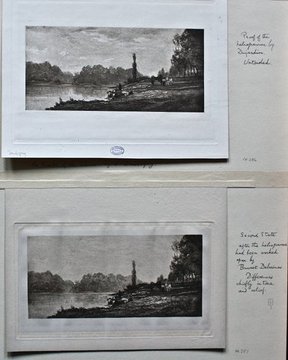 Proof of the
heliogravure by
Dujardin.
Untouched
Second State
after the heliogravure
had been worked
upon by
Brunet Debaines
Differences
chiefly in tone
and relief.